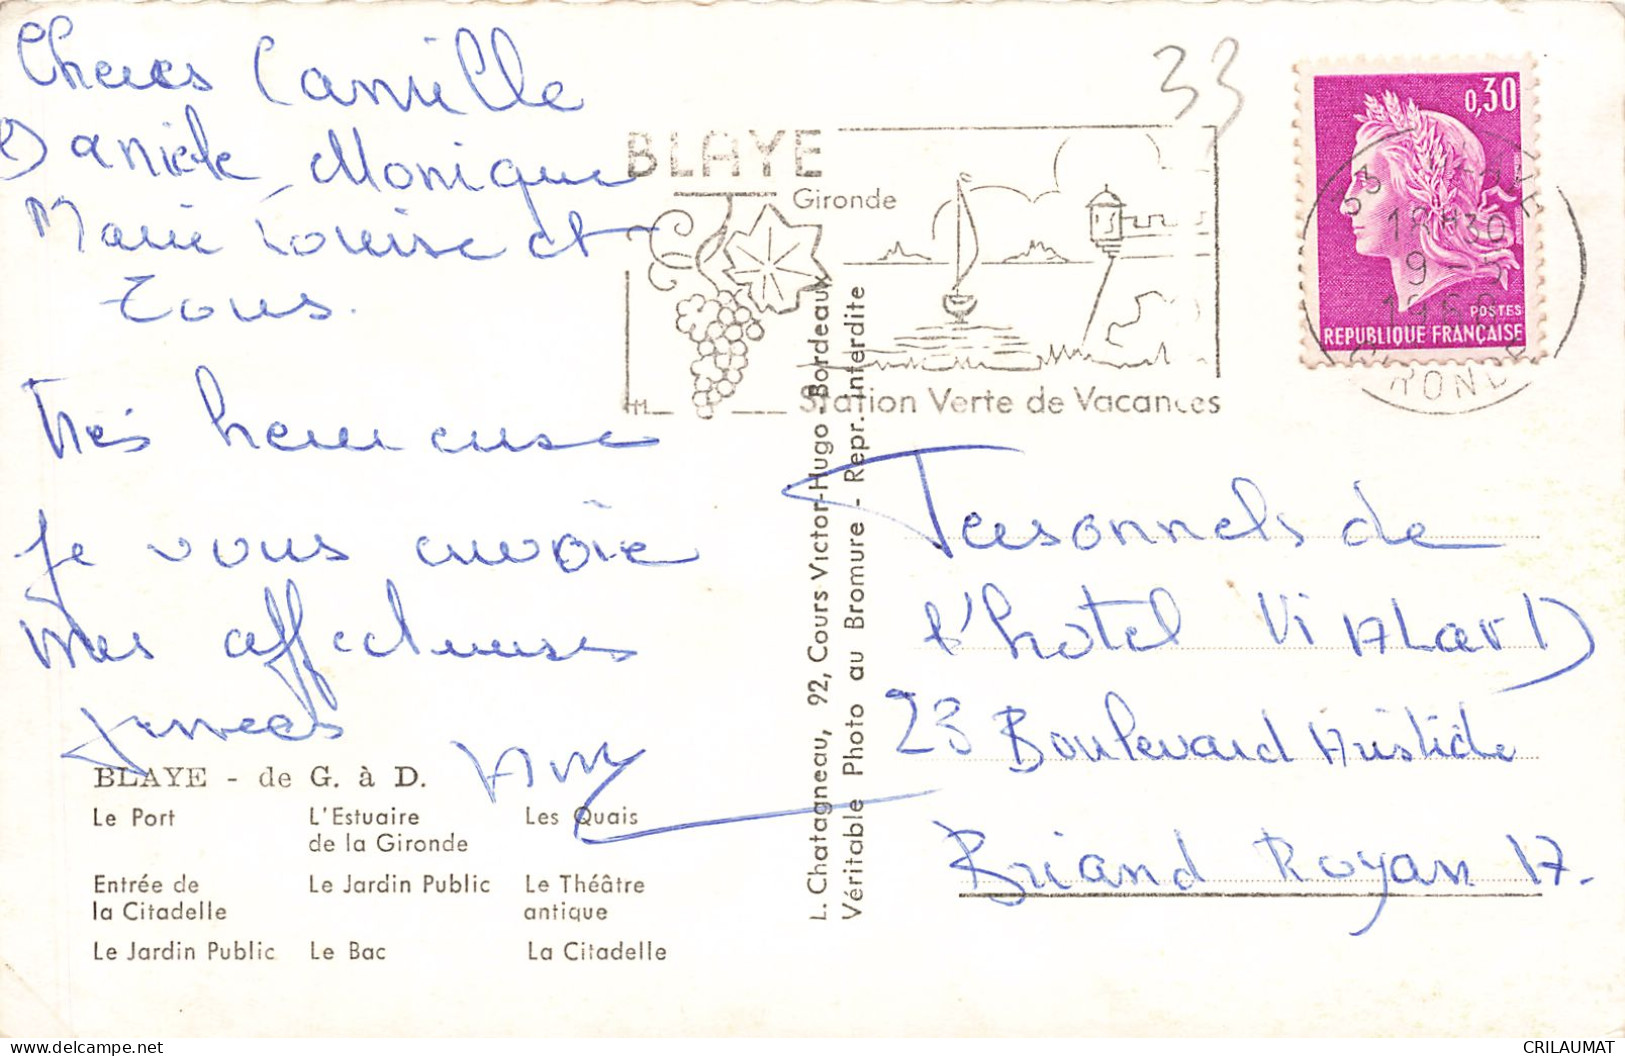 Cheres Camille
Daniele, Monique
Marie Louise et
Tous.
Très heureuse
Je vous envoie
mes affectueuses
pensees
BLAYE - de G. à D.
Le Port L'Estuaire de la Gironde Les Quais
Entrée de la Citadelle Le Jardin Public Le Théâtre antique
Le Jardin Public Le Bac La Citadelle
L. Chatagneau, 92, Cours Victor-Hugo - Bordeaux
Véritable Photo au Bromure - Repr. Interdite
33
BLAYE
Gironde
Station Verte de Vacances
0,30
POSTES
REPUBLIQUE FRANÇAISE
33 BLAYE
18H30
9-5
GIRONDE
Personnels de
l'hotel ViALarD
23 Boulevard Aristide
Briand Royan 17.
CRILAUMAT